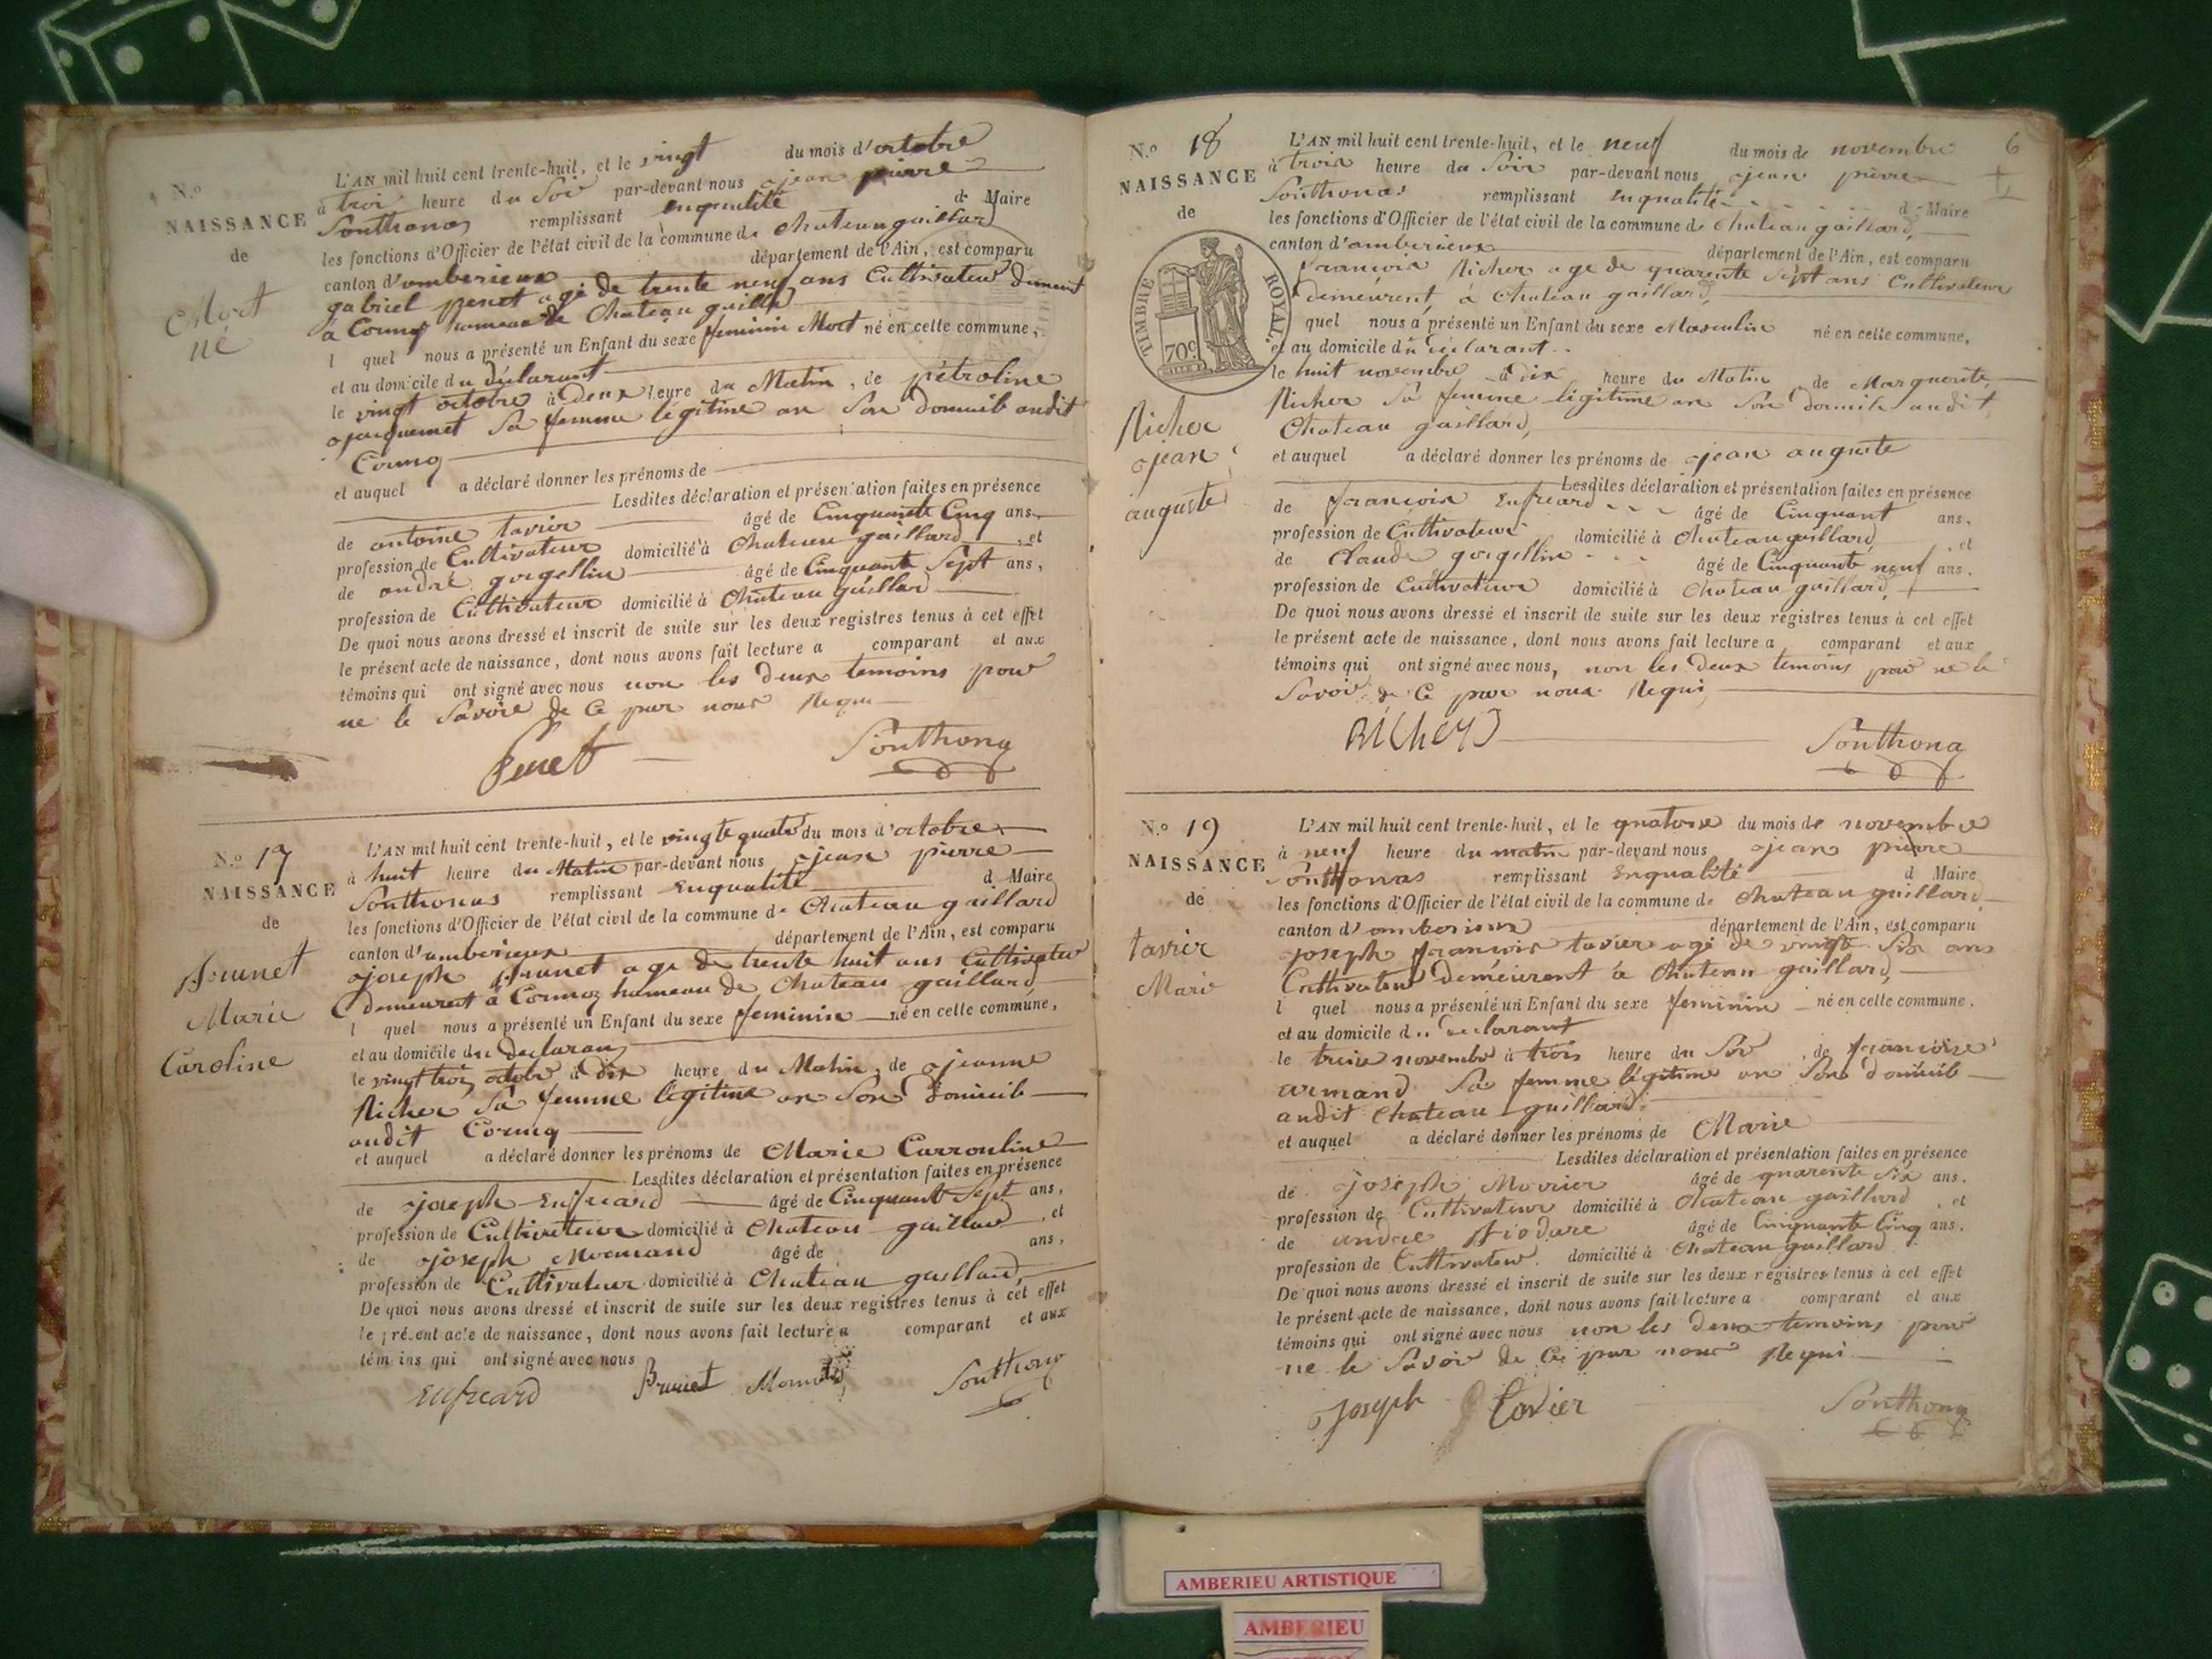 N.º
NAISSANCE
de
Mort
né
L'AN mil huit cent trente-huit, et le vingt du mois d'octobre
à troi heure du Soir par-devant nous jean pierre
Southonas remplissant enqualité d Maire
les fonctions d'Officier de l'état civil de la commune de Chateau gaillard
canton d'amberieux département de l'Ain, est comparu
gabriel penet agé de trente neuf ans Cultivateur
à hameau de Chateau gaillard
l quel nous a présenté un Enfant du sexe feminin Mort né en cette commune,
et au domicile du déclarant
le vingt octobre à deux heure du Matin, de pétroline
jacquemet Sa femme légitime an Son domicile audit
et auquel a déclaré donner les prénoms de
Lesdites déclaration et présentation faites en présence
de antoine tavier âgé de Cinquante Cinq ans,
profession de Cultivateur domicilié à Chateau gaillard, et
de andré gorgellin âgé de Cinquante Sept ans,
profession de Cultivateur domicilié à Chateau gaillard
De quoi nous avons dressé et inscrit de suite sur les deux registres tenus à cet effet
le présent acte de naissance, dont nous avons fait lecture a comparant et aux
témoins qui ont signé avec nous non les deux temoins pour
ne le Savoire de Ce par nous Requi
Penet Southona
N.º 17
NAISSANCE
de
Brunet
Marie
Caroline
L'AN mil huit cent trente-huit, et le vingt quatre du mois d'octobre
à huit heure du Matin par-devant nous jean pierre
Southonas remplissant Enqualité d Maire
les fonctions d'Officier de l'état civil de la commune de Chateau gaillard
canton d'amberieux département de l'Ain, est comparu
joseph Brunet age de trente huit ans Cultivateur
demeurant à Cormoz hameau de Chateau gaillard,
l quel nous a présenté un Enfant du sexe feminin né en cette commune,
et au domicile du declarant
le vingt troi octobre à dix heure du Matin, de jeanne
Richer Sa femme légitime an Son domicile
audit
et auquel a déclaré donner les prénoms de Marie Carrouline
Lesdites déclaration et présentation faites en présence
de joseph Enfreard âgé de Cinquante Sept ans,
profession de Cultivateur domicilié à Chateau gaillard, et
de joseph Mormand âgé de ans,
profession de Cultivateur domicilié à Chateau gaillard,
De quoi nous avons dressé et inscrit de suite sur les deux registres tenus à cet effet
le présent acte de naissance, dont nous avons fait lecture a comparant et aux
témoins qui ont signé avec nous
Enfreard Brunet Southona
6
N.º 18
NAISSANCE
de
TIMBRE ROYAL.
70c
Richer
jean
auguste
L'AN mil huit cent trente-huit, et le neuf du mois de novembre
à trois heure du Soir par-devant nous jean pierre
Southonas remplissant Enqualité d Maire
les fonctions d'Officier de l'état civil de la commune de Chateau gaillard,
canton d'amberieux département de l'Ain, est comparu
francois Richer age de quarente Sept ans Cultivateur
demeurent à Chateau gaillard,
quel nous a présenté un Enfant du sexe Masculin né en cette commune,
et au domicile du declarant
le huit novembre à dix heure du Matin de Marguerite
Richer Sa femme légitime an Son domicile audit
Chateau gaillard,
et auquel a déclaré donner les prénoms de jean auguste
Lesdites déclaration et présentation faites en présence
de francois Enfreard âgé de Cinquant ans,
profession de Cultivateur domicilié à Chateau gaillard, et
de Claude gorgellin âgé de Cinquante neuf ans,
profession de Cultivateur domicilié à Chateau gaillard,
De quoi nous avons dressé et inscrit de suite sur les deux registres tenus à cet effet
le présent acte de naissance, dont nous avons fait lecture a comparant et aux
témoins qui ont signé avec nous, non les deux temoins pour ne le
Savoir de Ce par nous Requi
Southona
N.º 19
NAISSANCE
de
tavier
Marie
L'AN mil huit cent trente-huit, et le quatorze du mois de novembre
à neuf heure du matin par-devant nous jean pierre
Southonas remplissant Enqualité d Maire
les fonctions d'Officier de l'état civil de la commune de Chateau gaillard,
canton d'amberieux département de l'Ain, est comparu
joseph francois tavier agé de vingt Six ans
Cultivateur demeurent à Chateau gaillard,
l quel nous a présenté un Enfant du sexe feminin né en cette commune,
et au domicile du declarant
le treize novembre à trois heure du Soir, de francoise
armand Sa femme légitime an Son domicile
audit Chateau gaillard,
et auquel a déclaré donner les prénoms de Marie
Lesdites déclaration et présentation faites en présence
de joseph âgé de quarente Six ans,
profession de Cultivateur domicilié à Chateau gaillard, et
de andre âgé de Cinquante Cinq ans,
profession de Cultivateur domicilié à Chateau gaillard
De quoi nous avons dressé et inscrit de suite sur les deux registres tenus à cet effet
le présent acte de naissance, dont nous avons fait lecture a comparant et aux
témoins qui ont signé avec nous non les deux temoins pour
ne le Savoir de Ce par nous Requi
Joseph tavier Southona
AMBERIEU ARTISTIQUE
AMBERIEU